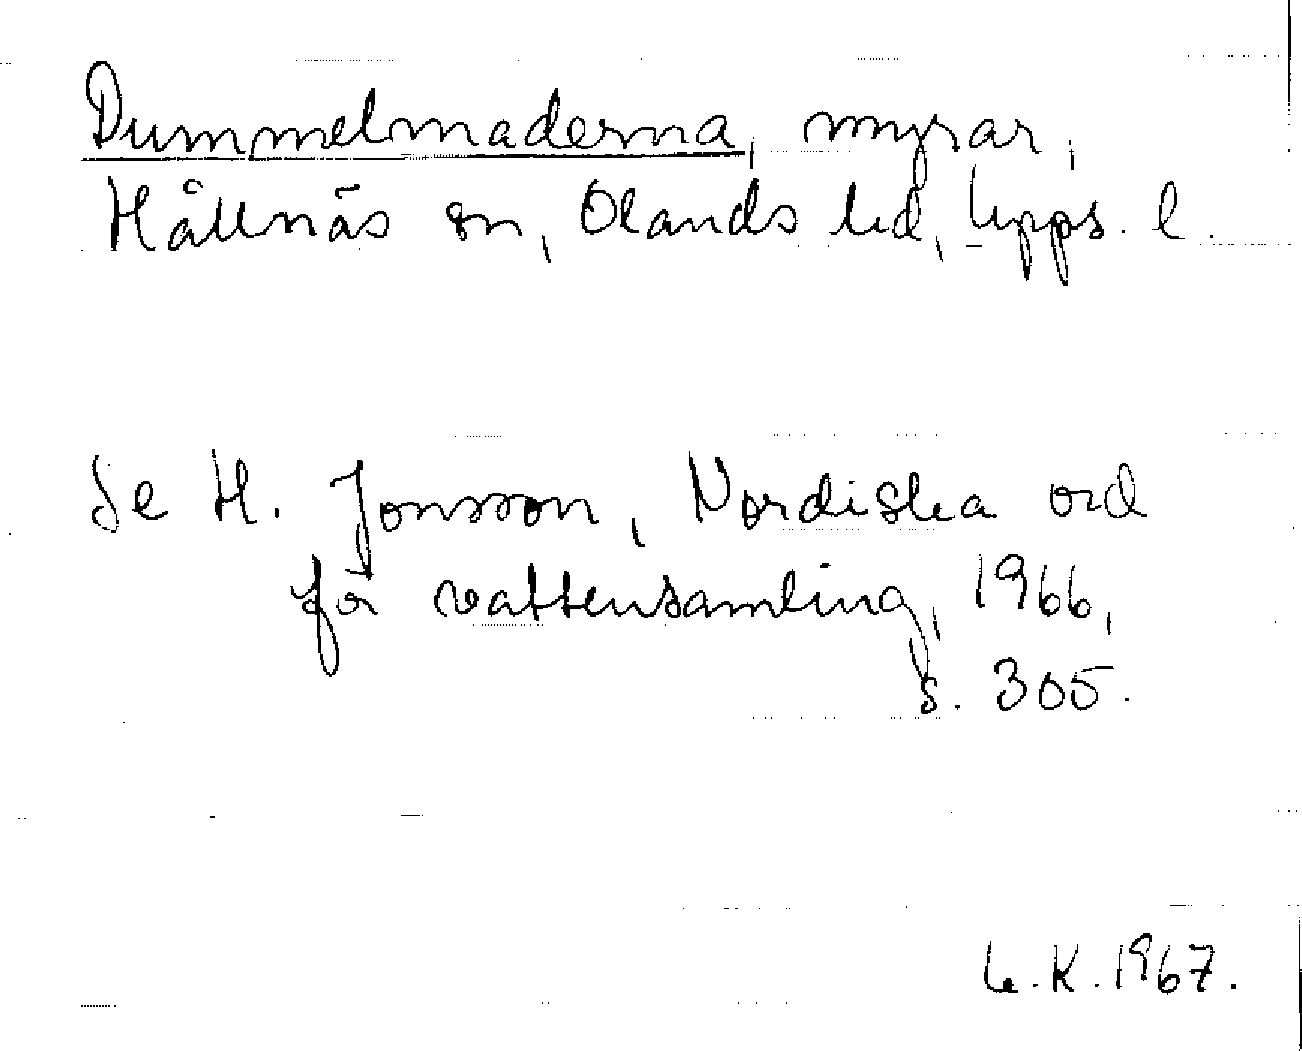 Dummelmaderna, myrar,
Hållnäs sn, Olands hd, Upps. l.
Se H. Jonsson, Nordiska ord
för vattensamling, 1966,
s. 305.
L.K. 1967.